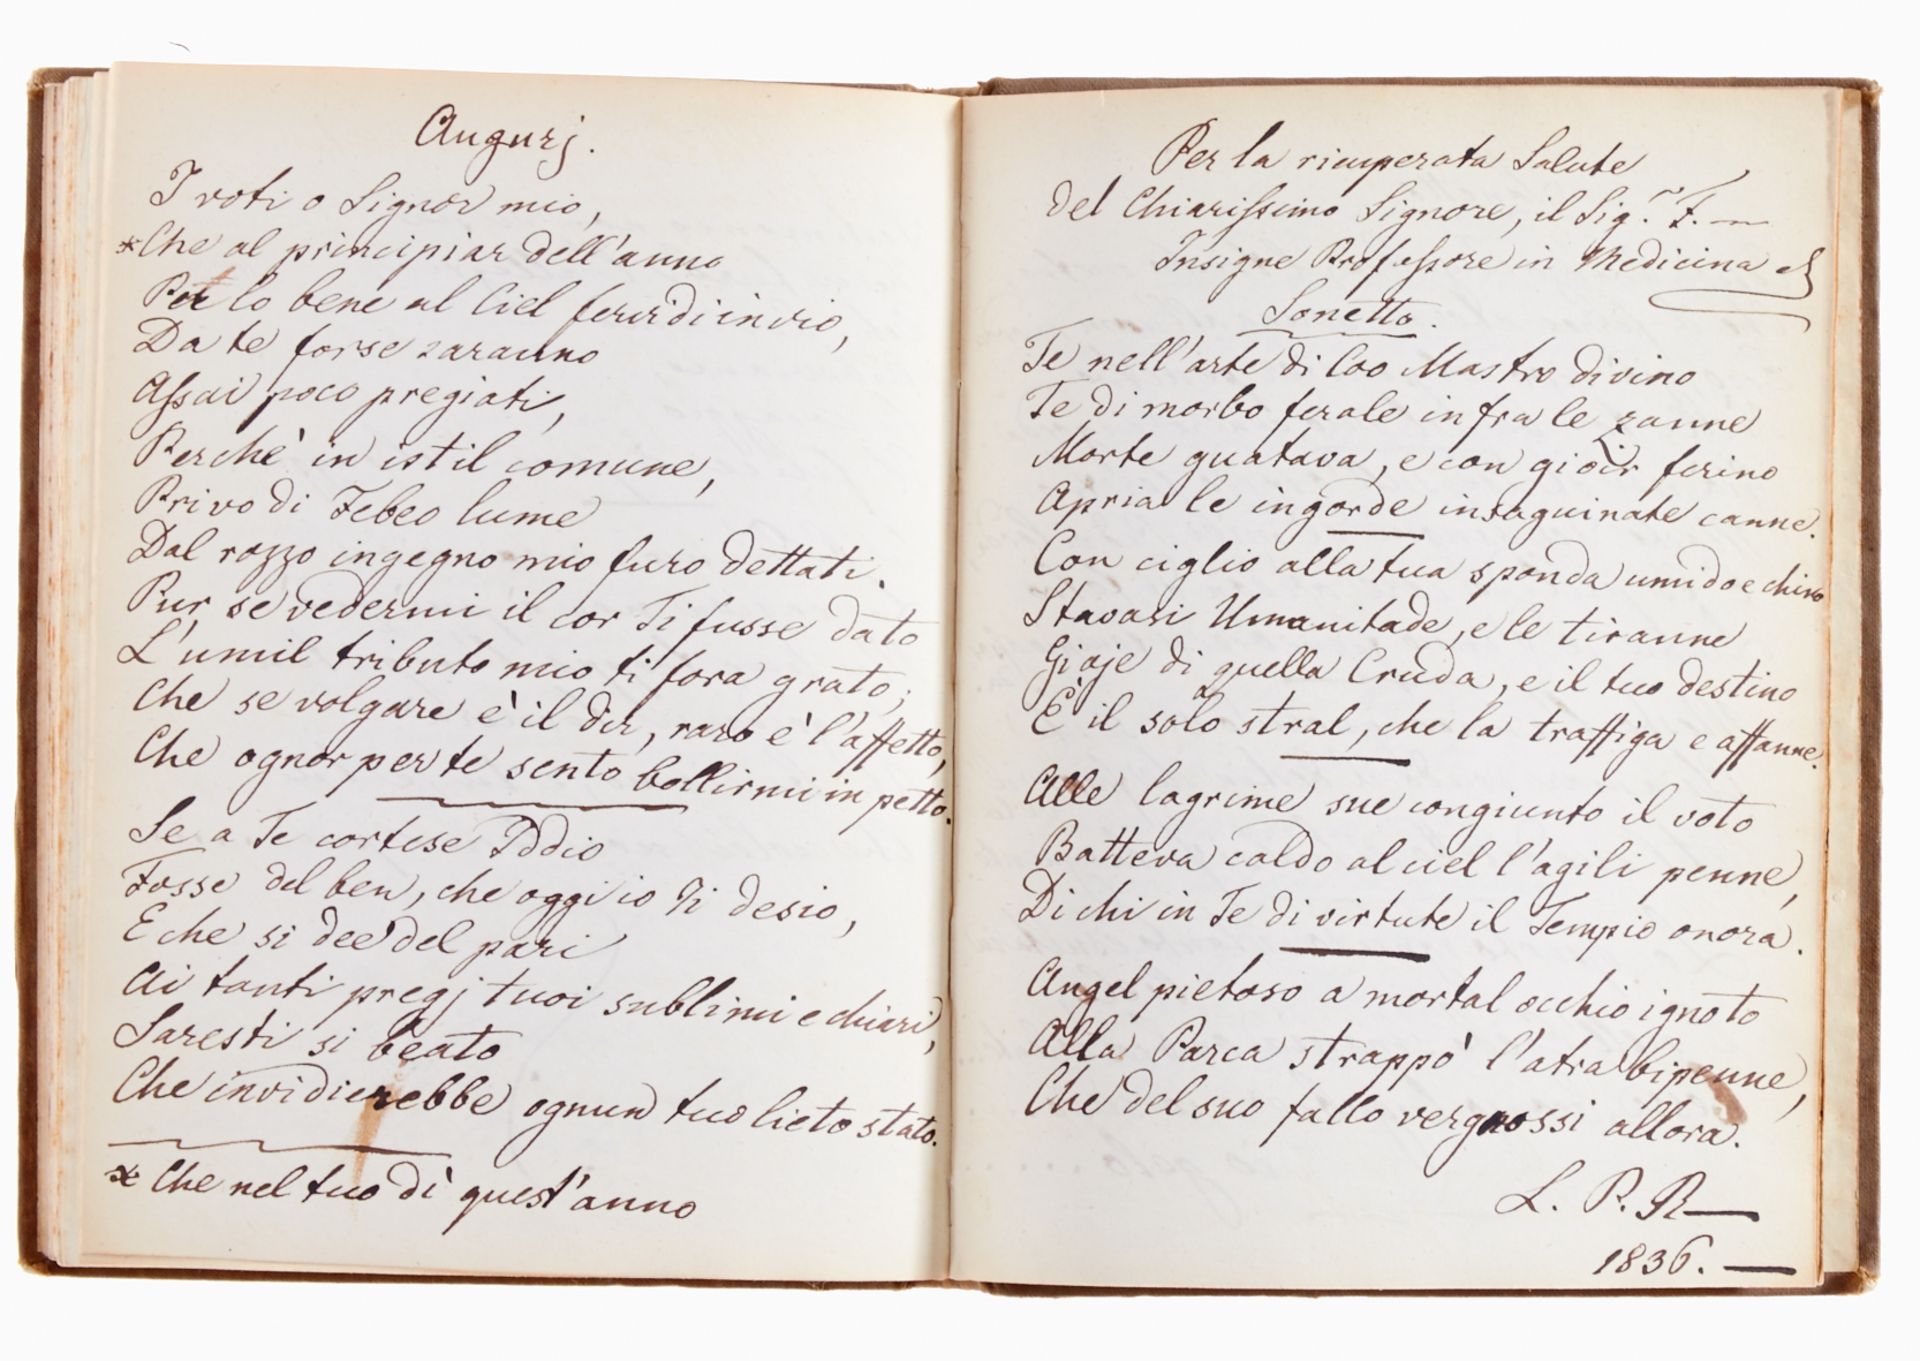 Augurj.
I voti o Signor mio,
*Che al principiar dell'anno
Per lo bene al Ciel fervidi invio,
Da te forse saranno
Assai poco pregiati,
Perchè in istil comune,
Privo di Febeo lume
Dal rozzo ingegno mio furo dettati.
Pur se vedermi il cor Ti fusse dato
L'umil tributo mio ti fora grato;
Che se volgare è il dir, raro è l'affetto,
Che ognor per te sento bollirmi in petto.
Se a Te cortese Iddio
Fosse del ben, che oggi io Ti desio,
E che si dee del pari
Ai tanti pregj tuoi sublimi e chiari,
Saresti si beato
Che invidierebbe ognun tuo lieto stato.
* Che nel tuo dì quest'anno
Per la ricuperata Salute
del Chiarissimo Signore, il Sig.r F. —
Insigne Professore in Medicina
Sonetto.
Te nell'arte di Coo Mastro divino
Te di morbo ferale infra le zanne
Morte guatava, e con gioir ferino
Apria le ingorde insaguinate canne.
Con ciglio alla tua sponda umido e chino
Stavasi Umanitade, e le tiranne
Gioje di quella Cruda, e il tuo destino
È il solo stral, che la traffiga e affanne.
Alle lagrime sue congiunto il voto
Batteva caldo al ciel l'agili penne,
Di chi in Te di virtute il Tempio onora.
Angel pietoso a mortal occhio ignoto
Alla Parca strappò l'atra bipenne,
Che del suo fallo vergnossi allora.
L. P. R—
1836. —